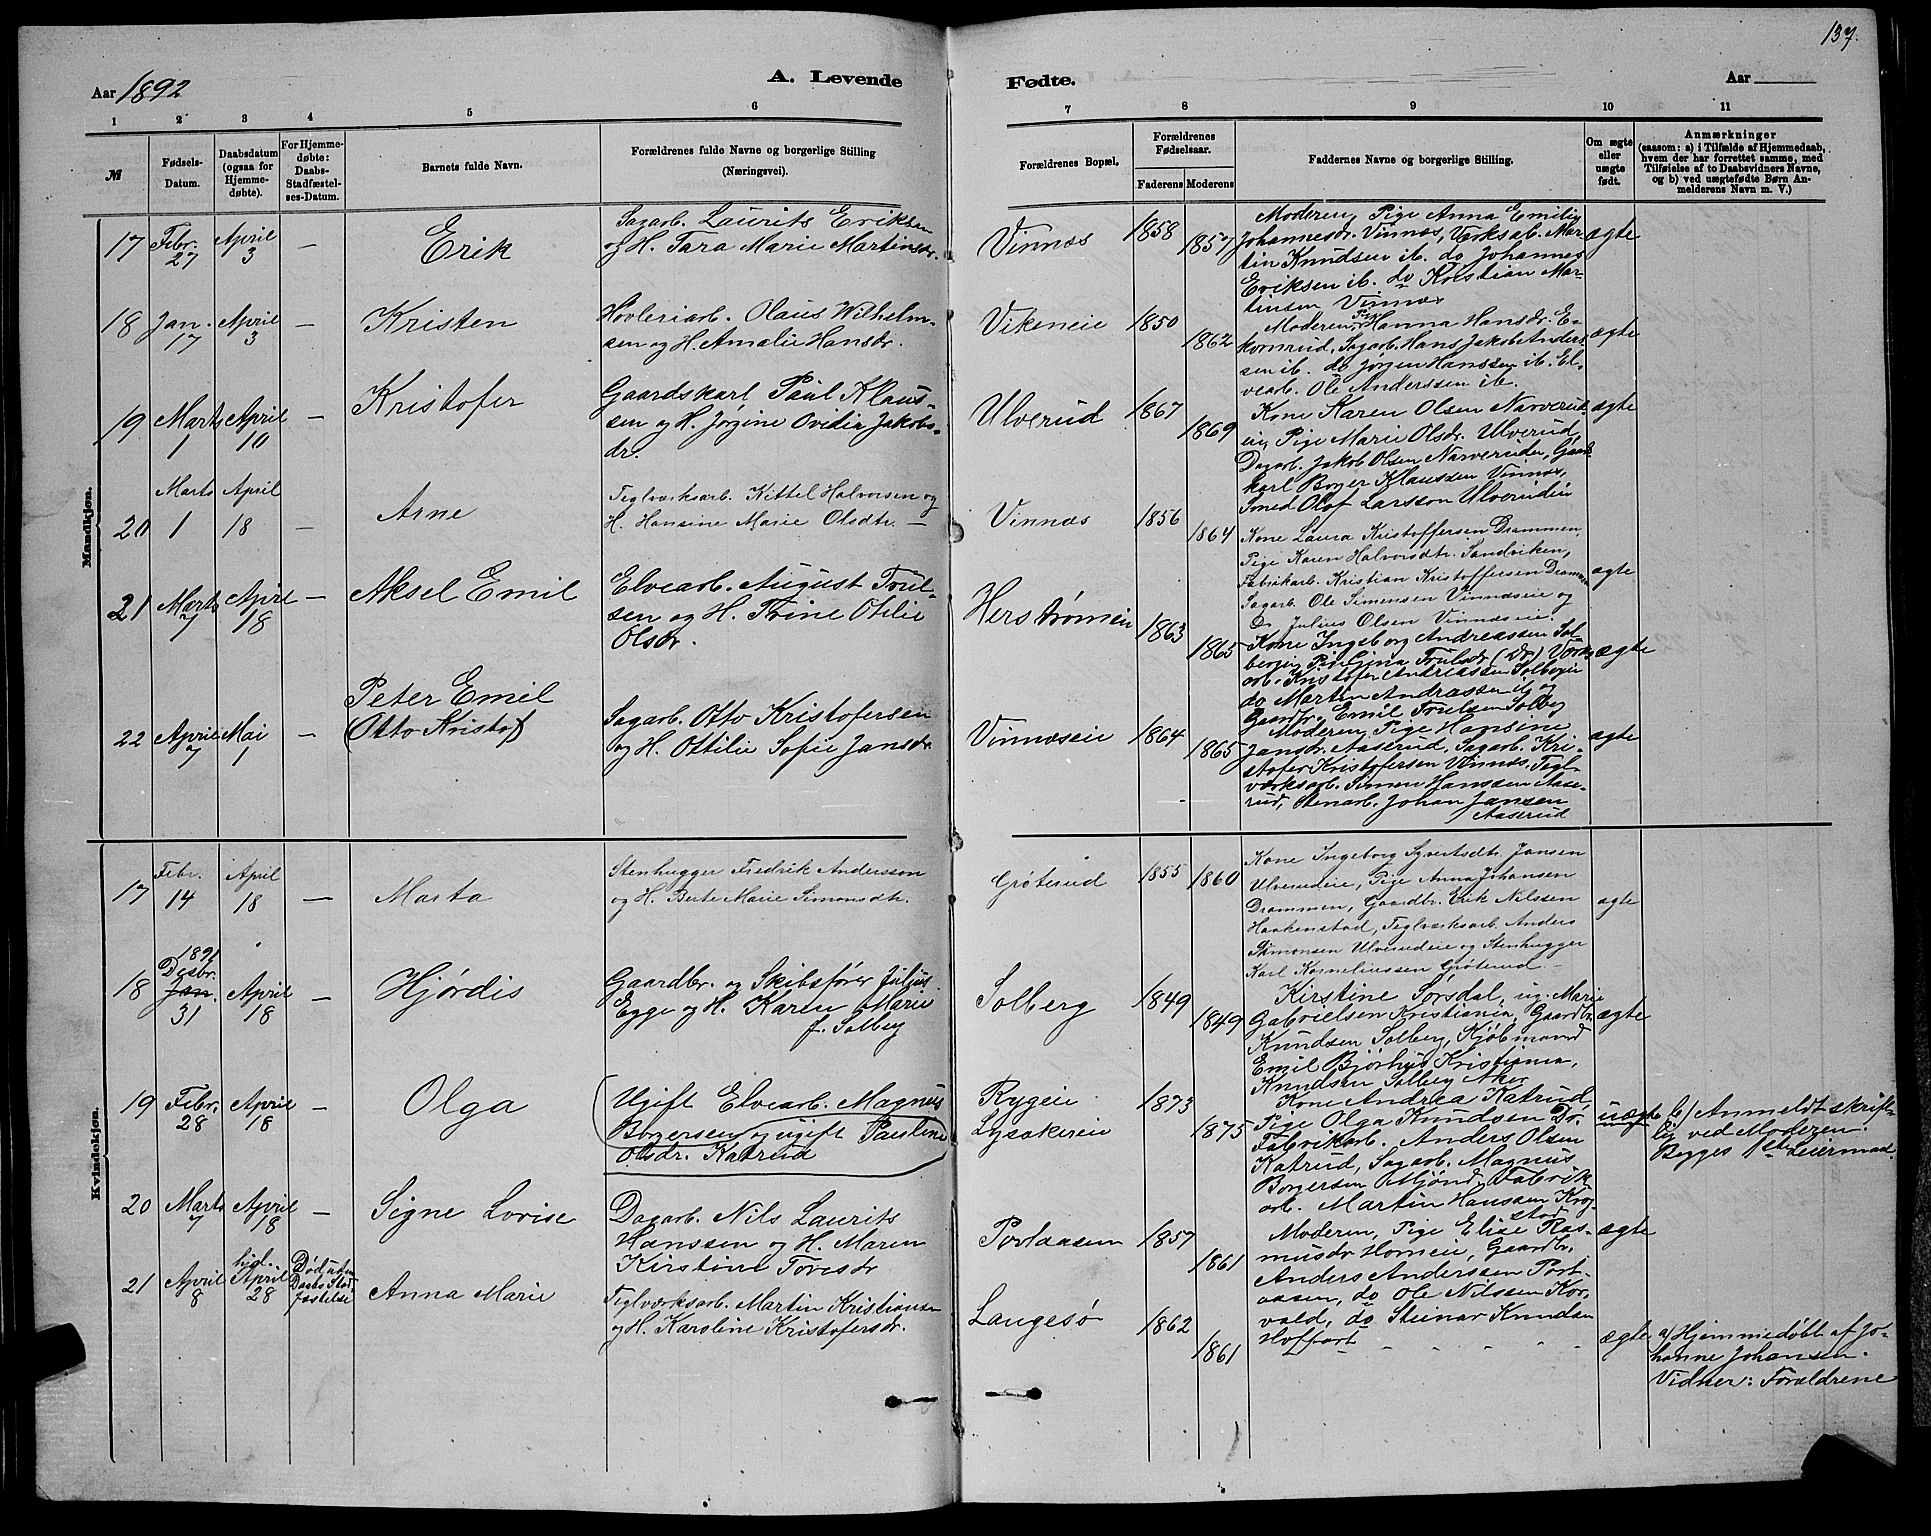 137.
Aar 1892
A. Levende
Fødte.
Aar
1 2 3 4 5 6 7 8 9 10 11
№
Fødsels-
Datum.
Daabsdatum
(ogsaa for
Hjemme-
døbte).
For Hjemme-
døbte:
Daabs-
Stadfæstel-
ses-Datum.
Barnets fulde Navn.
Forældrenes fulde Navne og borgerlige Stilling
(Næringsvei).
Forældrenes Bopæl.
Forældrenes
Fødselsaar.
Faderens Moderens
Faddernes Navne og borgerlige Stilling.
Om ægte
eller
uægte
født.
Anmærkninger
(saasom: a) i Tilfælde af Hjemmedaab,
hvem der har forrettet samme, med
Tilføielse af to Daabsvidners Navne,
og b) ved uægtefødte Børn An-
melderens Navn m. V.)
Mandkjøn.
17 Febr. 27 April 3 — Erik
Sagarb. Laurits Eriksen
og H. Tara Marie Martinsdr.
Vinnæs 1858 1857
Moderen, Pige Anna Emilie
Johannesdr. Vinnæs, Værksab. Mar-
tin Knudsen ib. do Johannes
Eriksen ib. do Kristian Mar-
tinsen Vinnæs
ægte
18 Jan. 17 April 3 — Kristen
Høvleriarb. Olaus Wilhelm-
sen og H. Amalie Hansdr.
Vikeneie 1850 1862
Moderen, Pige Hanna Hansdr. E-
kornrud, Sagarb. Hans Jakob Anders-
sen ib. do Jørgen Hanssen ib. El-
vearb. Ole Anderssen ib.
ægte
19 Marts 1 April 10 — Kristofer
Gaardskarl Paul Klaus-
sen og H. Jørgine Ovidia Jakobs-
dr.
Ulverud 1867 1869
Kone Karen Olsen Narverud-
ie, Pige Marie Olsdr. Ulverud,
Dagarb. Jakob Olsen Narverudie, Gaards-
karl Borger Klaussen Vinnæs,
Smed Olof Larsson Ulverudeie
ægte
20 Marts 1 April 18 — Arne
Teglværksarb. Kittel Halvorsen og
H. Hansine Marie Olsdtr. —
Vinnæs 1856 1864
Kone Laura Kristoffersen Drammen,
Pige Karen Halvorsdtr. Sandviken,
Fabrikarb. Kristian Kristoffersen Drammen
Sagarb. Ole Simensen Vinnæseie og
Do Julius Olsen Vinnæseie.
ægte
21 Marts 7 April 18 — Aksel Emil
Elvearb. August Trul-
sen og H. Trine Otilie
Olsdr.
Herstrømeie 1863 1865
Kone Ingeborg Andreassen Sol-
bergie, Pi. Lina Trulsdr (Dr) Værks
arb. Kristofer Andreassen Solbergie
do Martin Andreassen ib og
Gaardbr. Emil Trulsen Solberg
ægte
22 April 7 Mai 1 — Peter Emil
(Otto Kristof)
Sagarb. Otto Kristofersen
og H. Ottilie Sofie Jansdr
Vinnæseie 1864 1865
Moderen, Pige Hansine
Jansdr. Aaserud, Sagarb. Kri-
stofer Kristofersen Vinnæs, Tegl-
værksarb. Simen Hanssen Aase-
rud, Stenarb. Johan Jansen
Aaserud
ægte
Kvindekjøn.
17 Febr. 14 April 18 — Marta
Stenhugger Fredrik Andersson
og H. Berte Marie Simonsdtr.
Grøterud 1855 1860
Kone Ingeborg Syvertsdtr. Jansen
Ulverudeie, Pige Anna Johansen
Drammen, Gaardbr. Erik Nilssen
Haakenstad, Teglværksarb. Anders
Simonsen Ulverudeie og Stenhugger
Karl Korneliussen Grøterud. —
ægte
18 1891 Desbr. Jan. 31 April 18 — Hjørdis
Gaardbr. og Skibsfører Julius
Egge og H. Karen Marie
f. Solberg
Solberg 1849 1849
Kirstine Sørsdal, ug. Marie
Gabrielsen Kristiania, Gaardbr.
Knudsen Solberg, Kjøbmand
Emil Bjørhus Kristiania,
Knudsen Solberg Aker
ægte
19 Febr. 28 April 18 — Olga
Ugift Elvearb. Magnus
Borgersen og ugift Pauline
Olsdr. Katrud
Rygeie
Lysakereie
1873 1875
Kone Andrea Katrud,
Pige Olga Knudsen Dr,
Fabrikarb. Anders Olsen
Katrud, Sagarb. Magnus
Borgersen Mjønd, Fabrik
arb. Martin Hanssen Krog-
stad
uægte
b) Anmeldt skrift-
lig ved Moderen.
Begges 1ste Leiermaal.
20 Marts 7 April 18 — Signe Lovise
Dagarb. Nils Laurits
Hanssen og H. Maren
Kirstine Toresdr
Portaasen 1857 1861
Moderen, Pige Elise Ras-
musdr Horneie, Gaardbr.
Anders Anderssen Port-
aasen, do Ole Nilssen Kor-
vald, do Steinar Knudsen
Hoffart
ægte
21 April 8 hjd. April 28 Død uden
Daabs Stad-
fæstelse
Anna Marie
Teglværksarb. Martin Kristiansen
og H. Karoline Kristofersdr.
Langesø 1862 1861
— " " " " "
ægte
a) Hjemmedøbt af Jo-
hanne Johansen.
Vidner: Forældrene